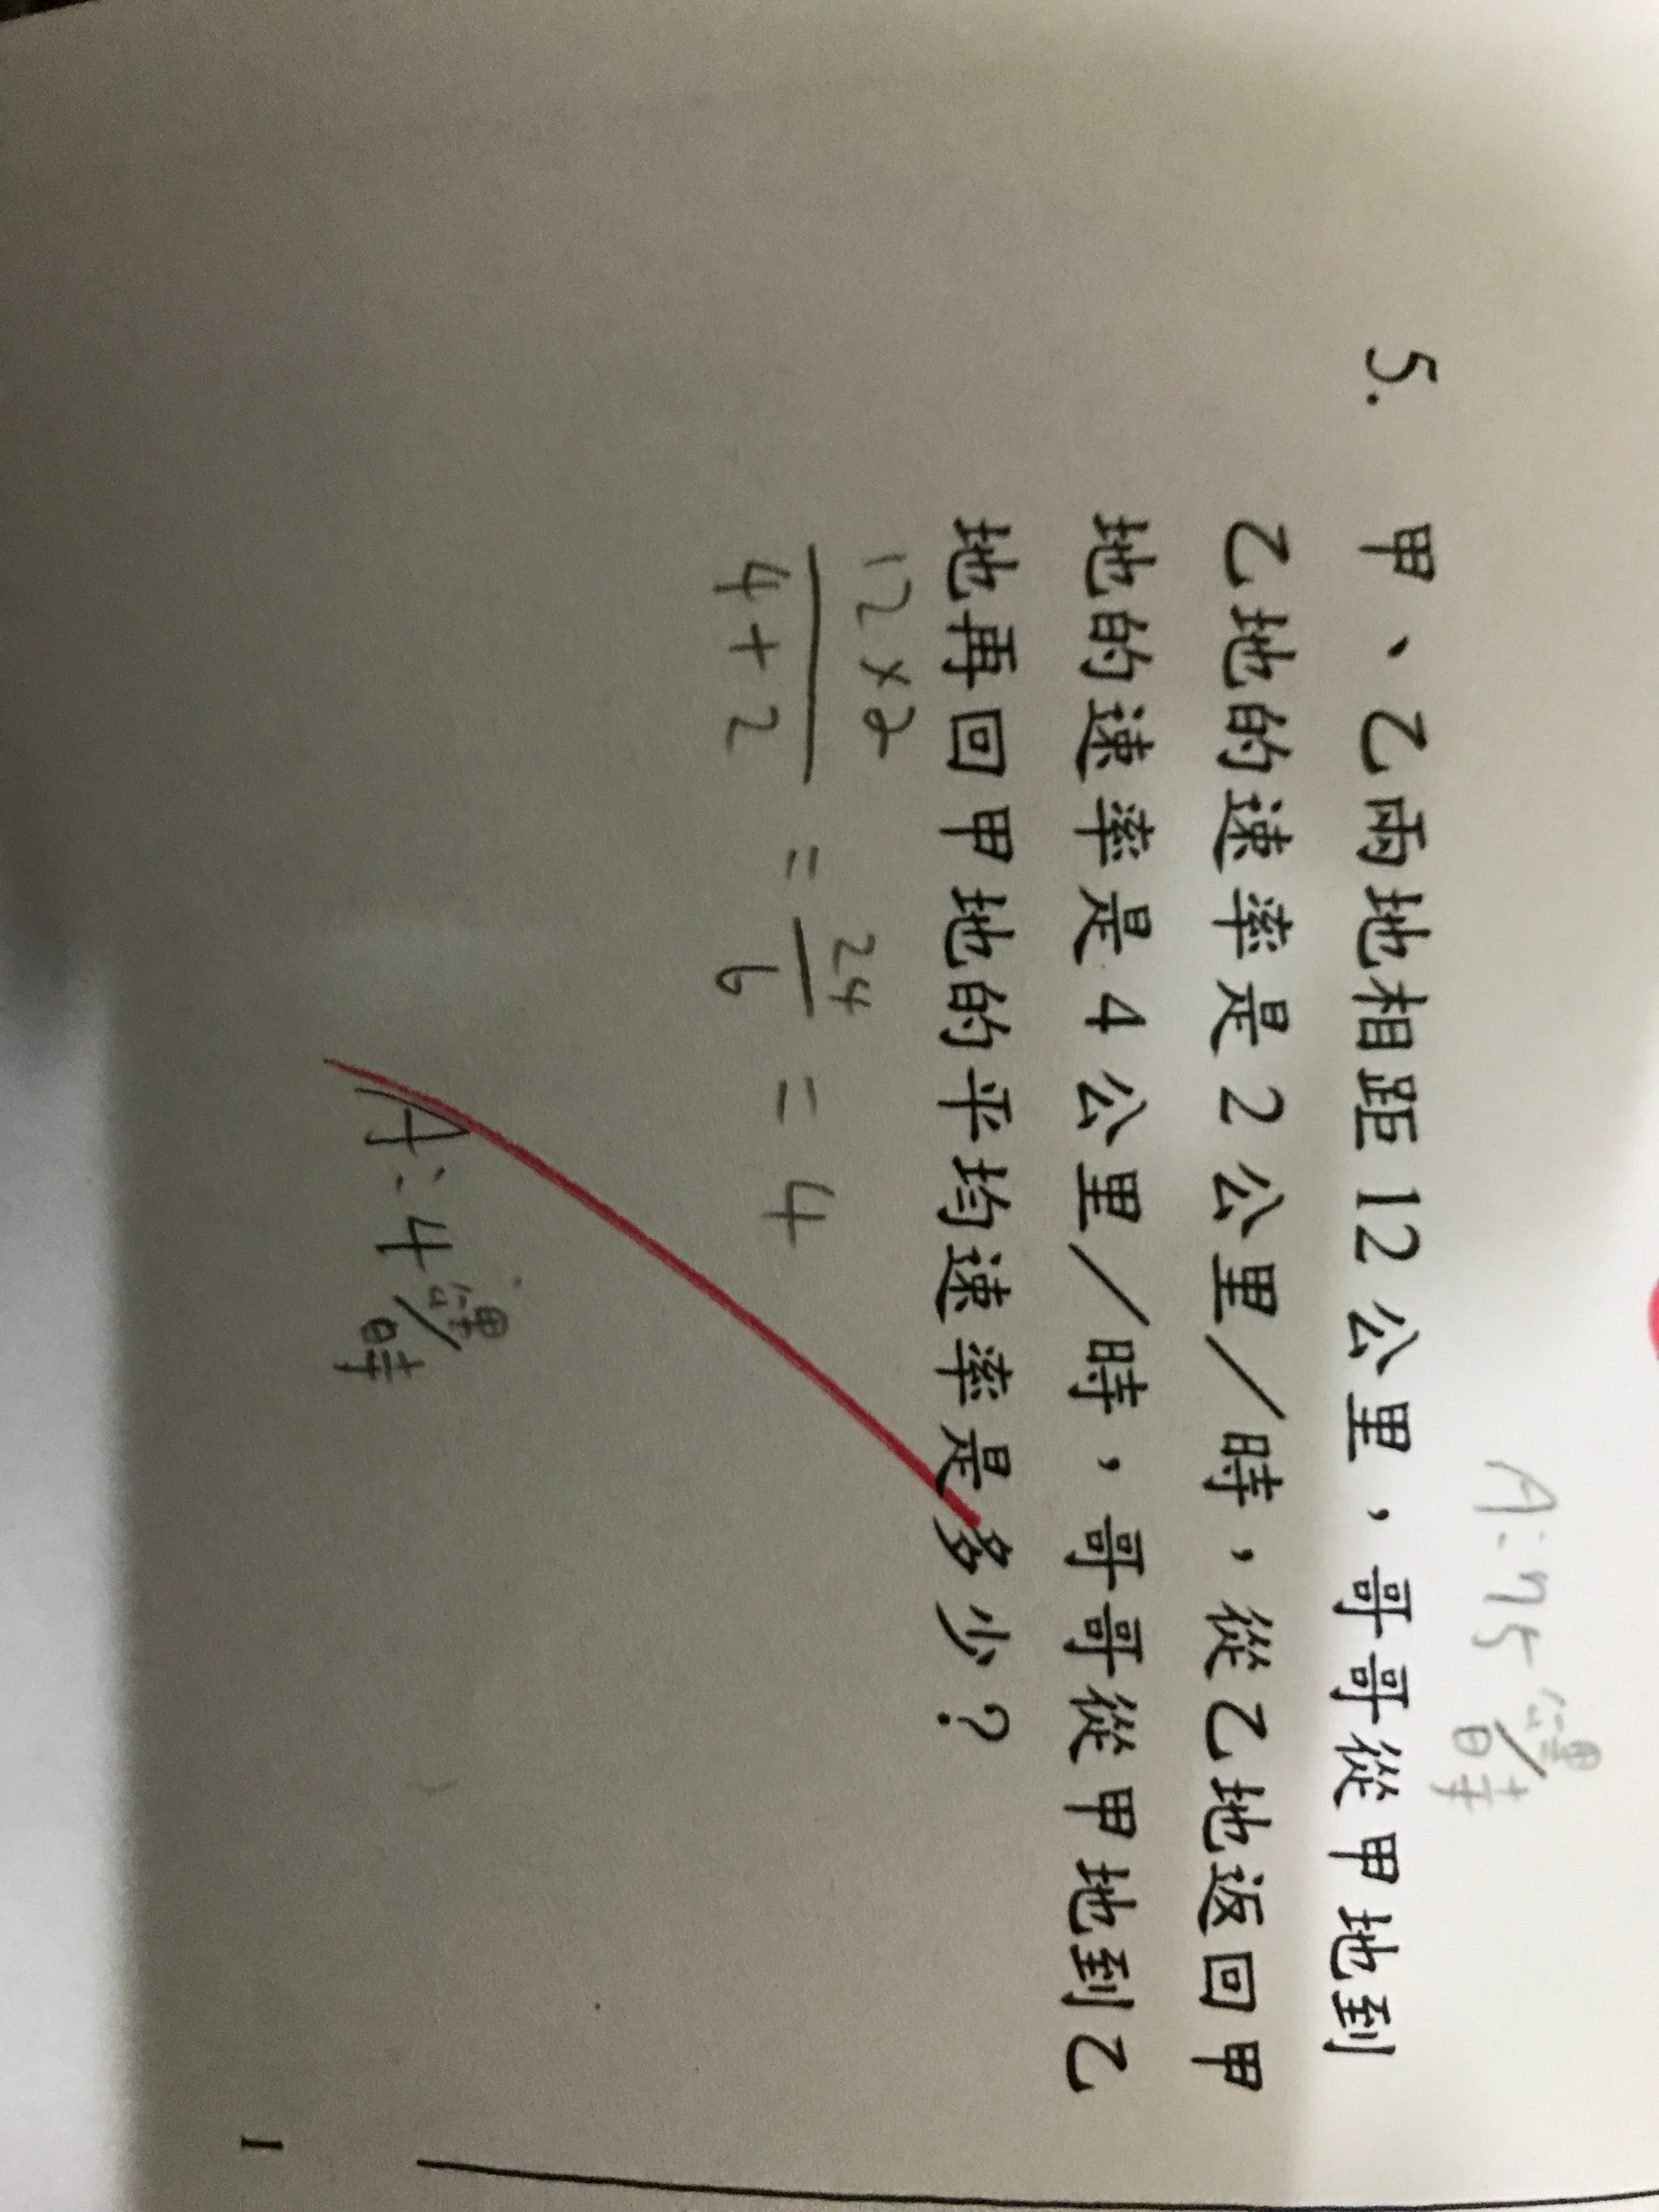 A:75公里/時
5. 甲、乙兩地相距12公里，哥哥從甲地到
乙地的速率是2公里／時，從乙地返回甲
地的速率是4公里／時，哥哥從甲地到乙
地再回甲地的平均速率是多少？
12×2/4+2 = 24/6 = 4
A:4公里/時
1